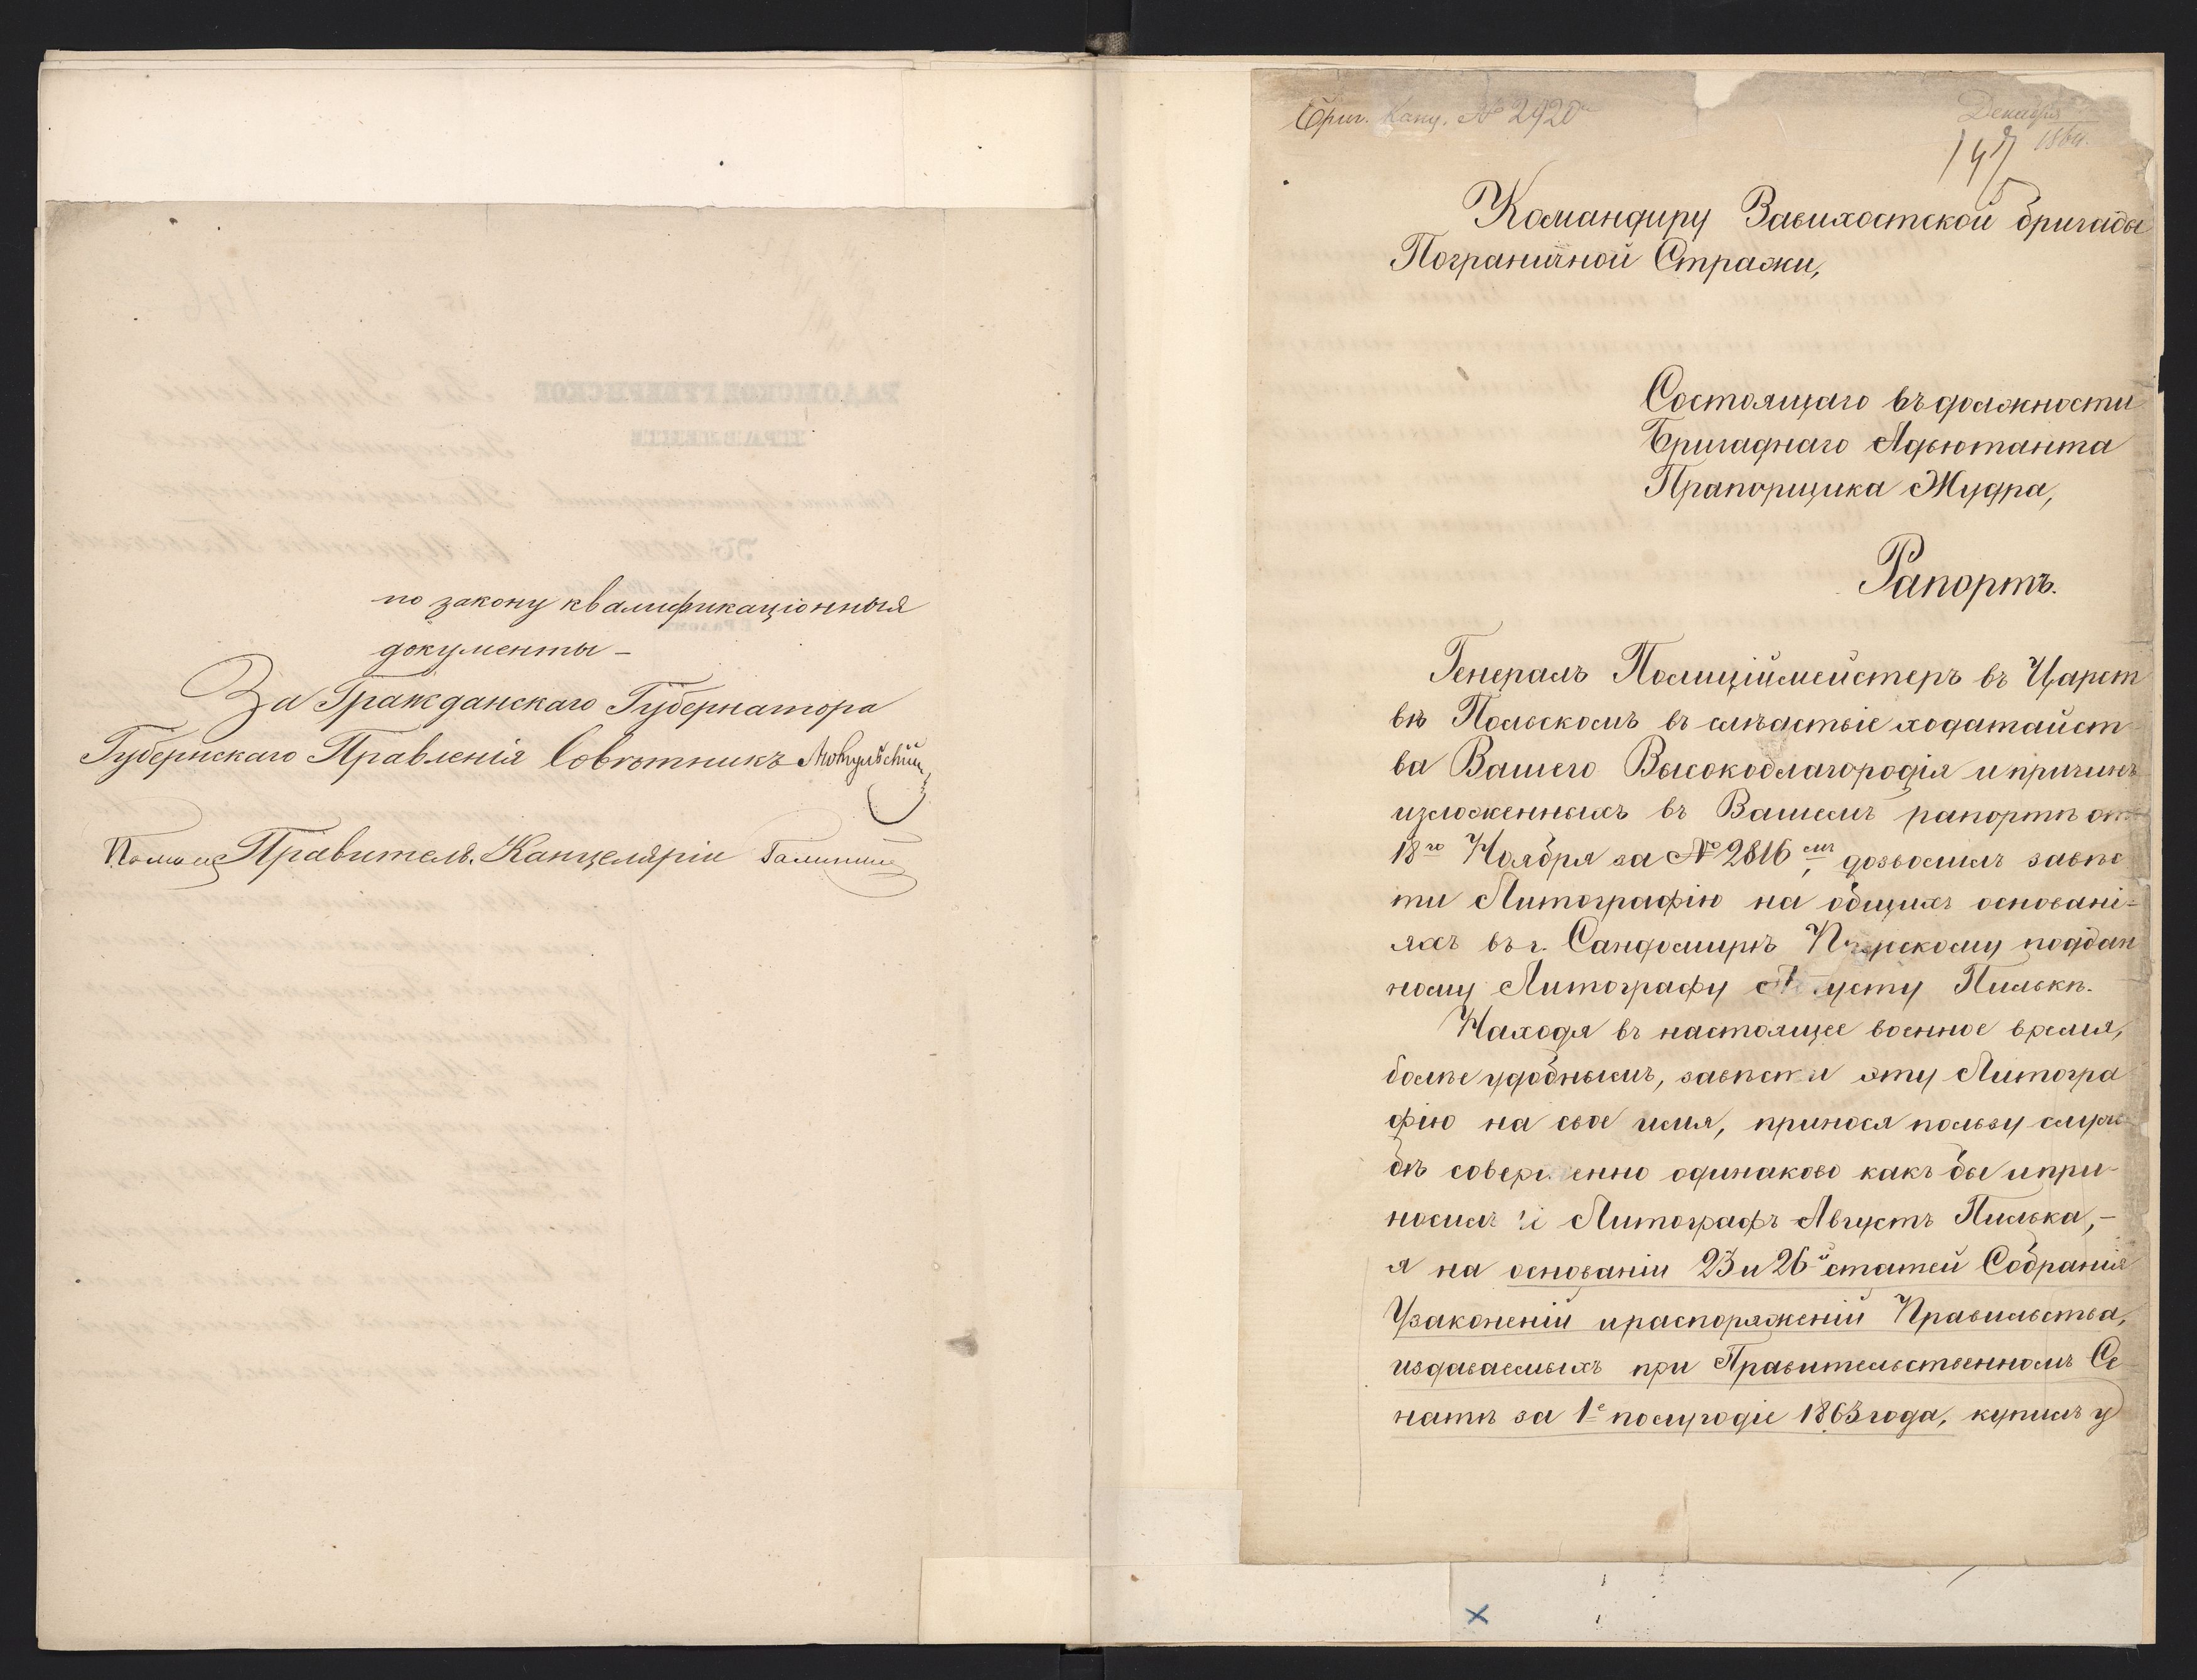 по закону квалификаціонныя
документы –
За Гражданскаго Губернатора
Губернскаго Правленія Совѣтникъ
Правитель Канцеляріи
Бриг. Канц. № 2920
Декабря
1864.
147
Командиру Завихостской бригады
Пограничной Стражи,
Состоящаго въ должности
Бригаднаго Адъютанта
Прапорщика Жудра,
Рапортъ.
Генералъ Полиціймейстеръ въ Царст
вѣ Польскомъ въ слѣдствіе ходатайст
ва Вашего Высокоблагородія и причинъ
изложенныхъ въ Вашемъ рапортѣ отъ
18го Ноября за № 2816мъ, дозволилъ завес
ти Литографію на общихъ основані-
яхъ въ г. Сандомирѣ поддан
ному Литографу Августу Пильке.
Находя въ настоящее военное время,
болѣе удобнымъ, завѣсти эту Литогра
фію на свое имя, принося пользу служ-
бѣ совершенно одинаково какъ бы и при-
носилъ и Литографъ Августъ Пилька, –
я на основаніи 23 и 26й статей Собранія
Узаконеній и распоряженій Правильства,
издаваемыхъ при Правительственномъ Се-
натѣ за 1е полугодіе 1863 года, купилъ у